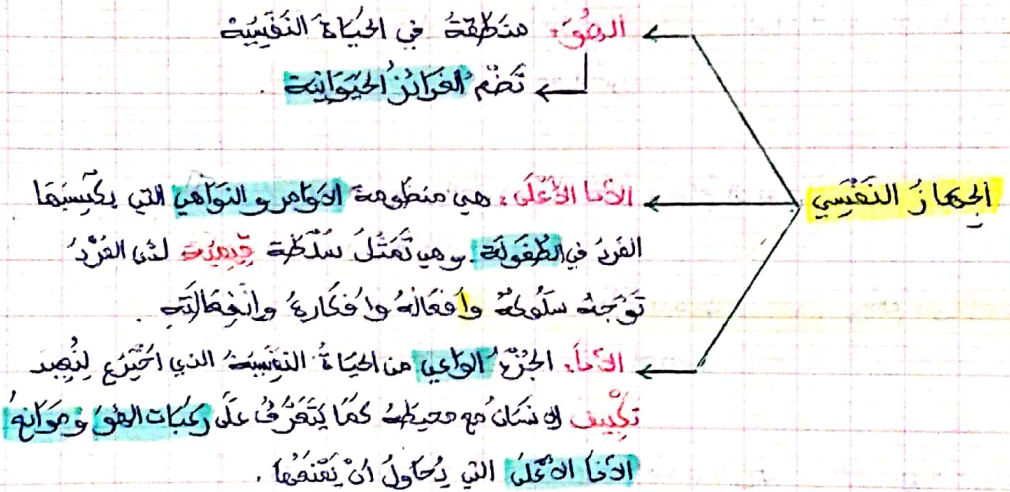 الهُوَ: منطقة في الحياة النفسية
تضم الغرائز الحيوانية.
الجهاز النفسي
الأنا الأعلى: هي منظومة الأوامر والنواهي التي يكتسبها
الفرد في الطفولة. وهي تمثل سلطة قيمية لدى الفرد
توجه سلوكه وأفعاله وأفكاره وانفعالاته.
الأنا: الجزء الواعي من الحياة النفسية الذي
تكييف الإنسان مع محيطه كما يتعرف على رغبات الهو وموانع
الأنا الأعلى التي يحاول أن